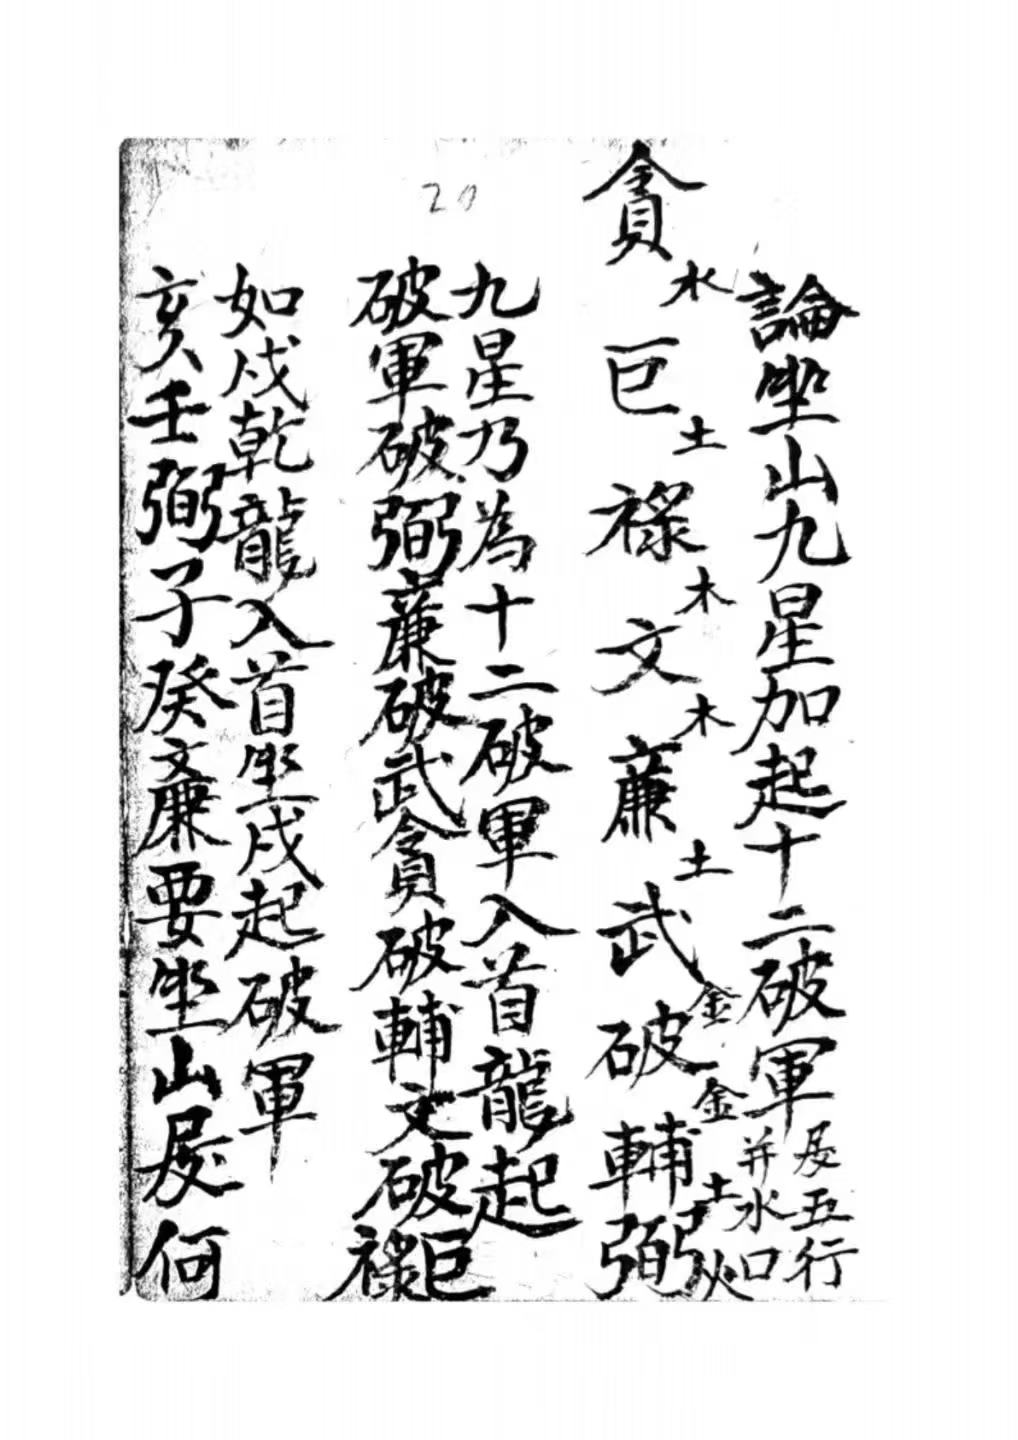 20
論坐山九星加起十二破軍 辰五行
并水口
貪水 巨土 祿木 文木 廉土 武金 破金 輔土 弼火
九星乃為十二破軍入首龍起
破軍破弼廉破武貪破輔文破巨祿
如戌乾龍入首坐戌起破軍
亥壬弼子癸文廉要坐山辰何